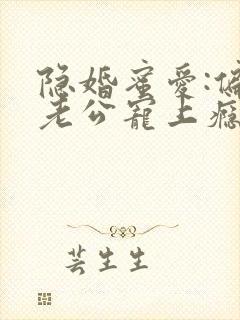 隐婚蜜爱:偏
老公寵上瘾
芸生生